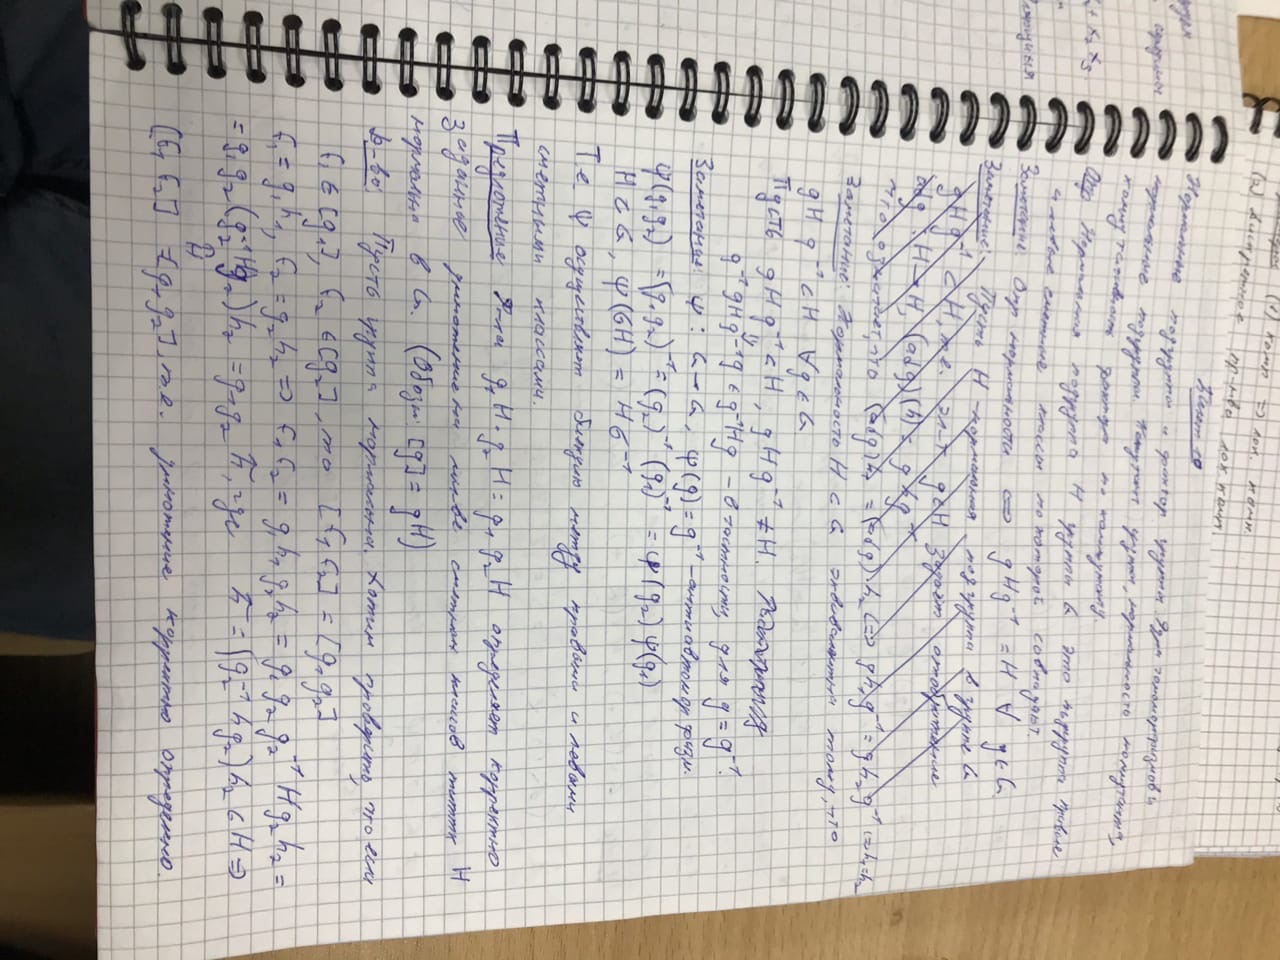 (1) комп => лок. комп.
(2) Дискретное пр-тво лок. комп.
Билет 10
Нормальные подгруппы и фактор группы. Ядра гомоморфизмов и
нормальные подгруппы. Коммутант группы, нормальность коммутанта,
коммутативность фактора по коммутанту.
Опр Нормальная подгруппа H группы G это подгруппа правые
и левые смежные классы по которой совпадают.
Замечание: Опр нормальности <=> gHg⁻¹ = H ∀ g∈G.
Замечание: Пусть H - нормальная подгруппа в группе G
gHg⁻¹ ⊂ H, т.е. эл-т g∈H задаёт отображение
adg : H→H, (adg)(h) = ghg⁻¹
что означает, что (adg)h₁ = (adg)h₂ <=> gh₁g⁻¹ = gh₂g⁻¹ <=> h₁=h₂
Замечание: Нормальность H ⊂ G эквивалентна тому, что
gHg⁻¹ ⊂ H ∀g∈G
Пусть gHg⁻¹ ⊂ H, gHg⁻¹ ≠ H.
g⁻¹gHg⁻¹g ∈ g⁻¹Hg - в частности, для g = g⁻¹.
Замечание: ψ : G→G, ψ(g) = g⁻¹ - антиавтоморфизм.
ψ(g₁g₂) = (g₁g₂)⁻¹ = (g₂)⁻¹ (g₁)⁻¹ = ψ(g₂)ψ(g₁)
H ⊂ G, ψ(GH) = HG⁻¹
Т.е. ψ осуществляет биекцию между правыми и левыми
смежными классами.
Предложение Ф-ла g₁H·g₂H = g₁g₂H определяет корректно
заданное умножение на мн-ве смежных классов титтк H
нормальна в G. (Обозн: [g] = gH)
Д-во: Пусть группа нормальна. Хотим проверить, что если
f₁ ∈ [g₁], f₂ ∈ [g₂], то [f₁f₂] = [g₁g₂]
f₁ = g₁h₁, f₂ = g₂h₂ => f₁f₂ = g₁h₁g₂h₂ = g₁g₂g₂⁻¹Hg₂h₂ =
= g₁g₂(g₂⁻¹Hg₂)h₂ = g₁g₂h̄, где h̄ = (g₂⁻¹hg₂)h₂ ∈ H =>
H
[f₁f₂] = [g₁g₂], т.е. умножение корректно определено.